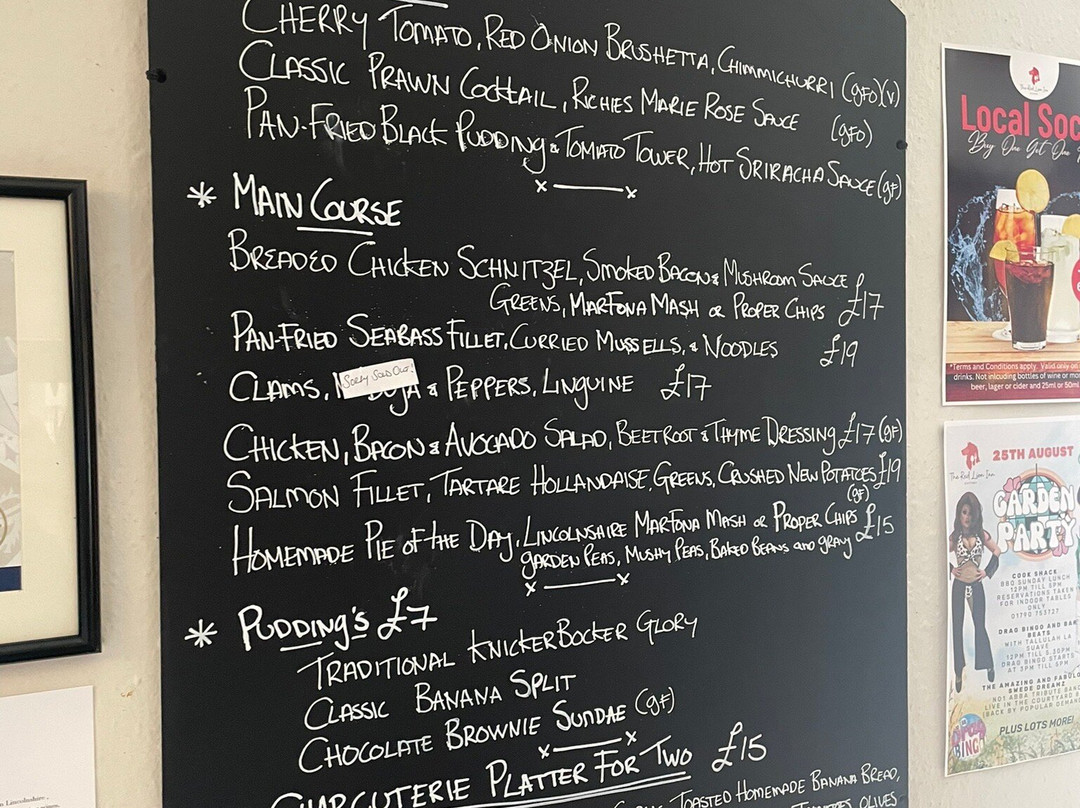 CHERRY TOMATO, RED ONION BRUSHETTA, CHIMMICHURRI (gfo)(v)
CLASSIC PRAWN COCKTAIL, RICHIES MARIE ROSE SAUCE (gfo)
PAN-FRIED BLACK PUDDING & TOMATO TOWER, HOT SRIRACHA SAUCE (gf)
* MAIN COURSE
BREADED CHICKEN SCHNITZEL, SMOKED BACON & MUSHROOM SAUCE
GREENS, MARFONA MASH OR PROPER CHIPS £17
PAN-FRIED SEABASS FILLET, CURRIED MUSSELLS, & NOODLES £19
CLAMS, & PEPPERS, LINGUINE £17
SORRY SOLD OUT!
CHICKEN, BACON & AVOCADO SALAD, BEETROOT & THYME DRESSING £17 (gf)
SALMON FILLET, TARTARE HOLLANDAISE, GREENS, CRUSHED NEW POTATOES £19
(gf)
HOMEMADE PIE OF THE DAY, LINCOLNSHIRE MARFONA MASH OR PROPER CHIPS £15
GARDEN PEAS, MUSHY PEAS, BAKED BEANS AND GRAVY
* PUDDING'S £7
TRADITIONAL KNICKERBOCKER GLORY
CLASSIC BANANA SPLIT
CHOCOLATE BROWNIE SUNDAE (gf)
CHARCUTERIE PLATTER FOR TWO £15
TOASTED HOMEMADE BANANA BREAD,
OLIVES
The Red Lion Inn
Local Soc
Buy One Get One
*Terms and Conditions apply. Valid only on
drinks. Not inlcuding bottles of wine or
beer, lager or cider and 25ml or 50ml
The Red Lion Inn
25TH AUGUST
GARDEN
PARTY
COOK SHACK
BBQ SUNDAY LUNCH
12PM TILL 5PM
RESERVATIONS TAKEN
FOR INDOOR TABLES
ONLY
01790 753727
DRAG BINGO AND
BEATS
WITH TALLULAH LA
SUAVE
12PM TILL 5.30PM
DRAG BINGO STARTS
AT 3PM TILL 5PM
THE AMAZING AND
SWEDE DREAMZ
NO1 ABBA TRIBUTE
LIVE IN THE COURTYARD
(BACK BY POPULAR
PLUS LOTS MORE!
BINGO
Lincolnshire,